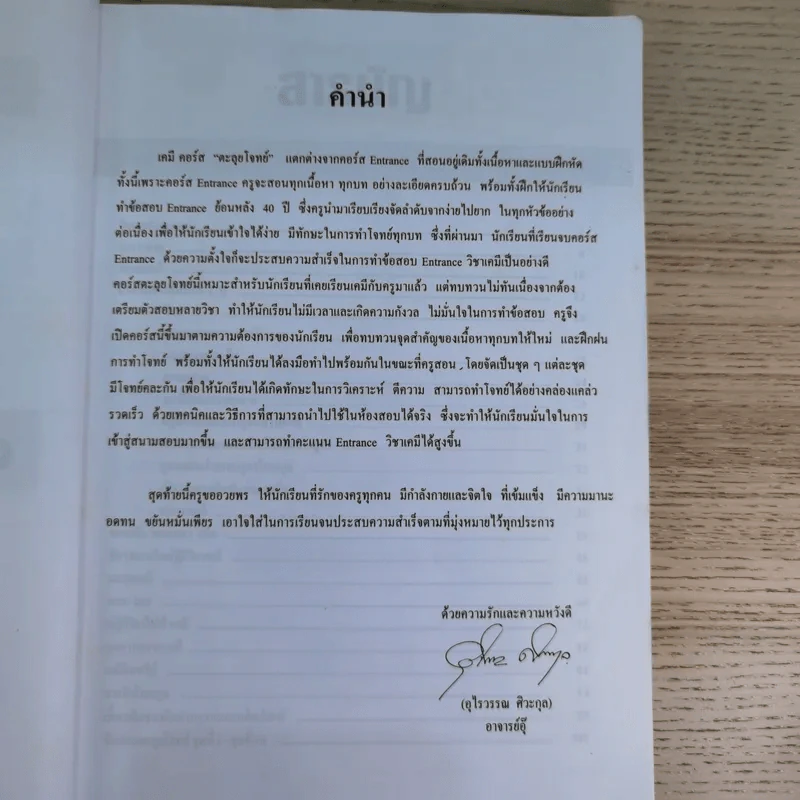 คำนำ
เคมี คอร์ส "ตะลุยโจทย์" แตกต่างจากคอร์ส Entrance ที่สอนอยู่เดิมทั้งเนื้อหาและแบบฝึกหัด
ทั้งนี้เพราะคอร์ส Entrance ครูจะสอนทุกเนื้อหา ทุกบท อย่างละเอียดครบถ้วน พร้อมทั้งฝึกให้นักเรียน
ทำข้อสอบ Entrance ย้อนหลัง 40 ปี ซึ่งครูนำมาเรียบเรียงจัดลำดับจากง่ายไปยาก ในทุกหัวข้ออย่าง
ต่อเนื่อง เพื่อให้นักเรียนเข้าใจได้ง่าย มีทักษะในการทำโจทย์ทุกบท ซึ่งที่ผ่านมา นักเรียนที่เรียนจบคอร์ส
Entrance ด้วยความตั้งใจก็จะประสบความสำเร็จในการทำข้อสอบ Entrance วิชาเคมีเป็นอย่างดี
คอร์สตะลุยโจทย์นี้เหมาะสำหรับนักเรียนที่เคยเรียนเคมีกับครูมาแล้ว แต่ทบทวนไม่ทันเนื่องจากต้อง
เตรียมตัวสอบหลายวิชา ทำให้นักเรียนไม่มีเวลาและเกิดความกังวล ไม่มั่นใจในการทำข้อสอบ ครูจึง
เปิดคอร์สนี้ขึ้นมาตามความต้องการของนักเรียน เพื่อทบทวนจุดสำคัญของเนื้อหาทุกบทให้ใหม่ และฝึกฝน
การทำโจทย์ พร้อมทั้งให้นักเรียนได้ลงมือทำไปพร้อมกันในขณะที่ครูสอน โดยจัดเป็นชุด ๆ แต่ละชุด
มีโจทย์คละกัน เพื่อให้นักเรียนได้เกิดทักษะในการวิเคราะห์ ตีความ สามารถทำโจทย์ได้อย่างคล่องแคล่ว
รวดเร็ว ด้วยเทคนิคและวิธีการที่สามารถนำไปใช้ในห้องสอบได้จริง ซึ่งจะทำให้นักเรียนมั่นใจในการ
เข้าสู่สนามสอบมากขึ้น และสามารถทำคะแนน Entrance วิชาเคมีได้สูงขึ้น
สุดท้ายนี้ครูขออวยพร ให้นักเรียนที่รักของครูทุกคน มีกำลังกายและจิตใจ ที่เข้มแข็ง มีความมานะ
อดทน ขยันหมั่นเพียร เอาใจใส่ในการเรียนจนประสบความสำเร็จตามที่มุ่งหมายไว้ทุกประการ
ด้วยความรักและความหวังดี
(อุไรวรรณ ศิวะกุล)
อาจารย์อุ๊